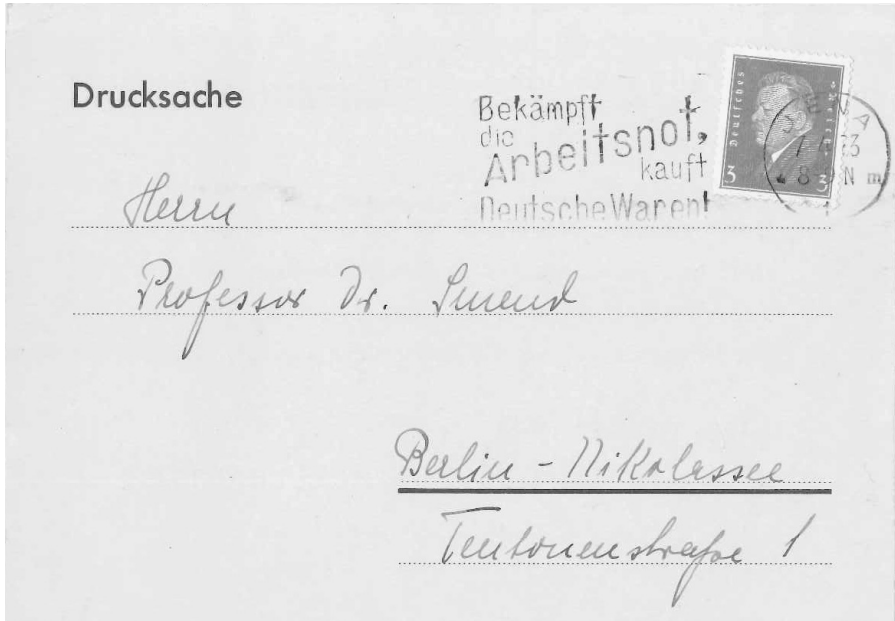 Drucksache
Bekämpft
die
Arbeitsnot,
kauft
Deutsche Waren!
Deutsches Reich
3 3
JENA
8-9 N
Herrn
Professor Dr. Smend
Berlin - Nikolassee
Teutonenstraße 1